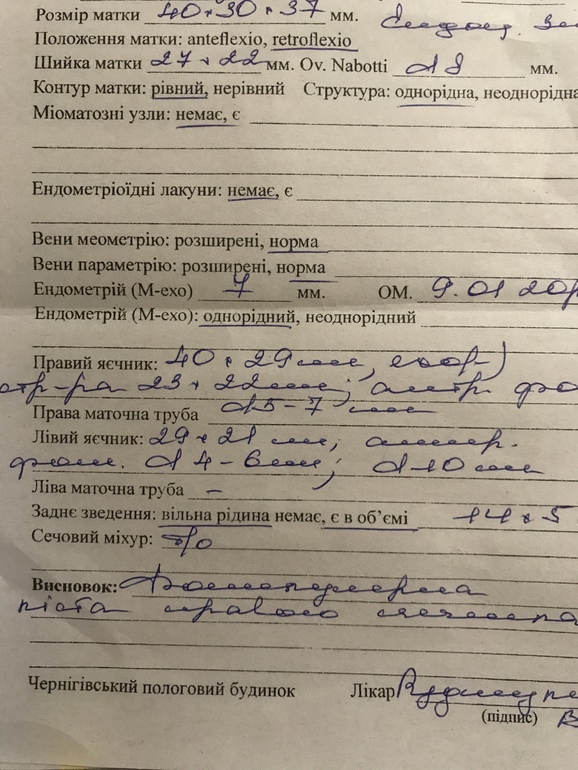 Розмір матки 40×30×37 мм.
Положення матки: anteflexio, retroflexio
Шийка матки 27×22 мм. Ov. Nabotti d 8 мм.
Контур матки: рівний, нерівний Структура: однорідна, неоднорідна
Міоматозні узли: немає, є
Ендометріоїдні лакуни: немає, є
Вени меометрію: розширені, норма
Вени параметрію: розширені, норма
Ендометрій (М-ехо) 7 мм. ОМ. 9.01
Ендометрій (М-ехо): однорідний, неоднорідний
Правий яєчник: 40×29 мм,
стр-ра 23×22 мм; антр. фо
Права маточна труба d 5-7 мм
Лівий яєчник: 29×21 мм; антр.
фол. d 4-6 мм; d 10 мм
Ліва маточна труба –
Заднє зведення: вільна рідина немає, є в об’ємі 14×5
Сечовий міхур:
Висновок: Фолікулярна
кіста правого яєчника
Чернігівський пологовий будинок Лікар
(підпис)